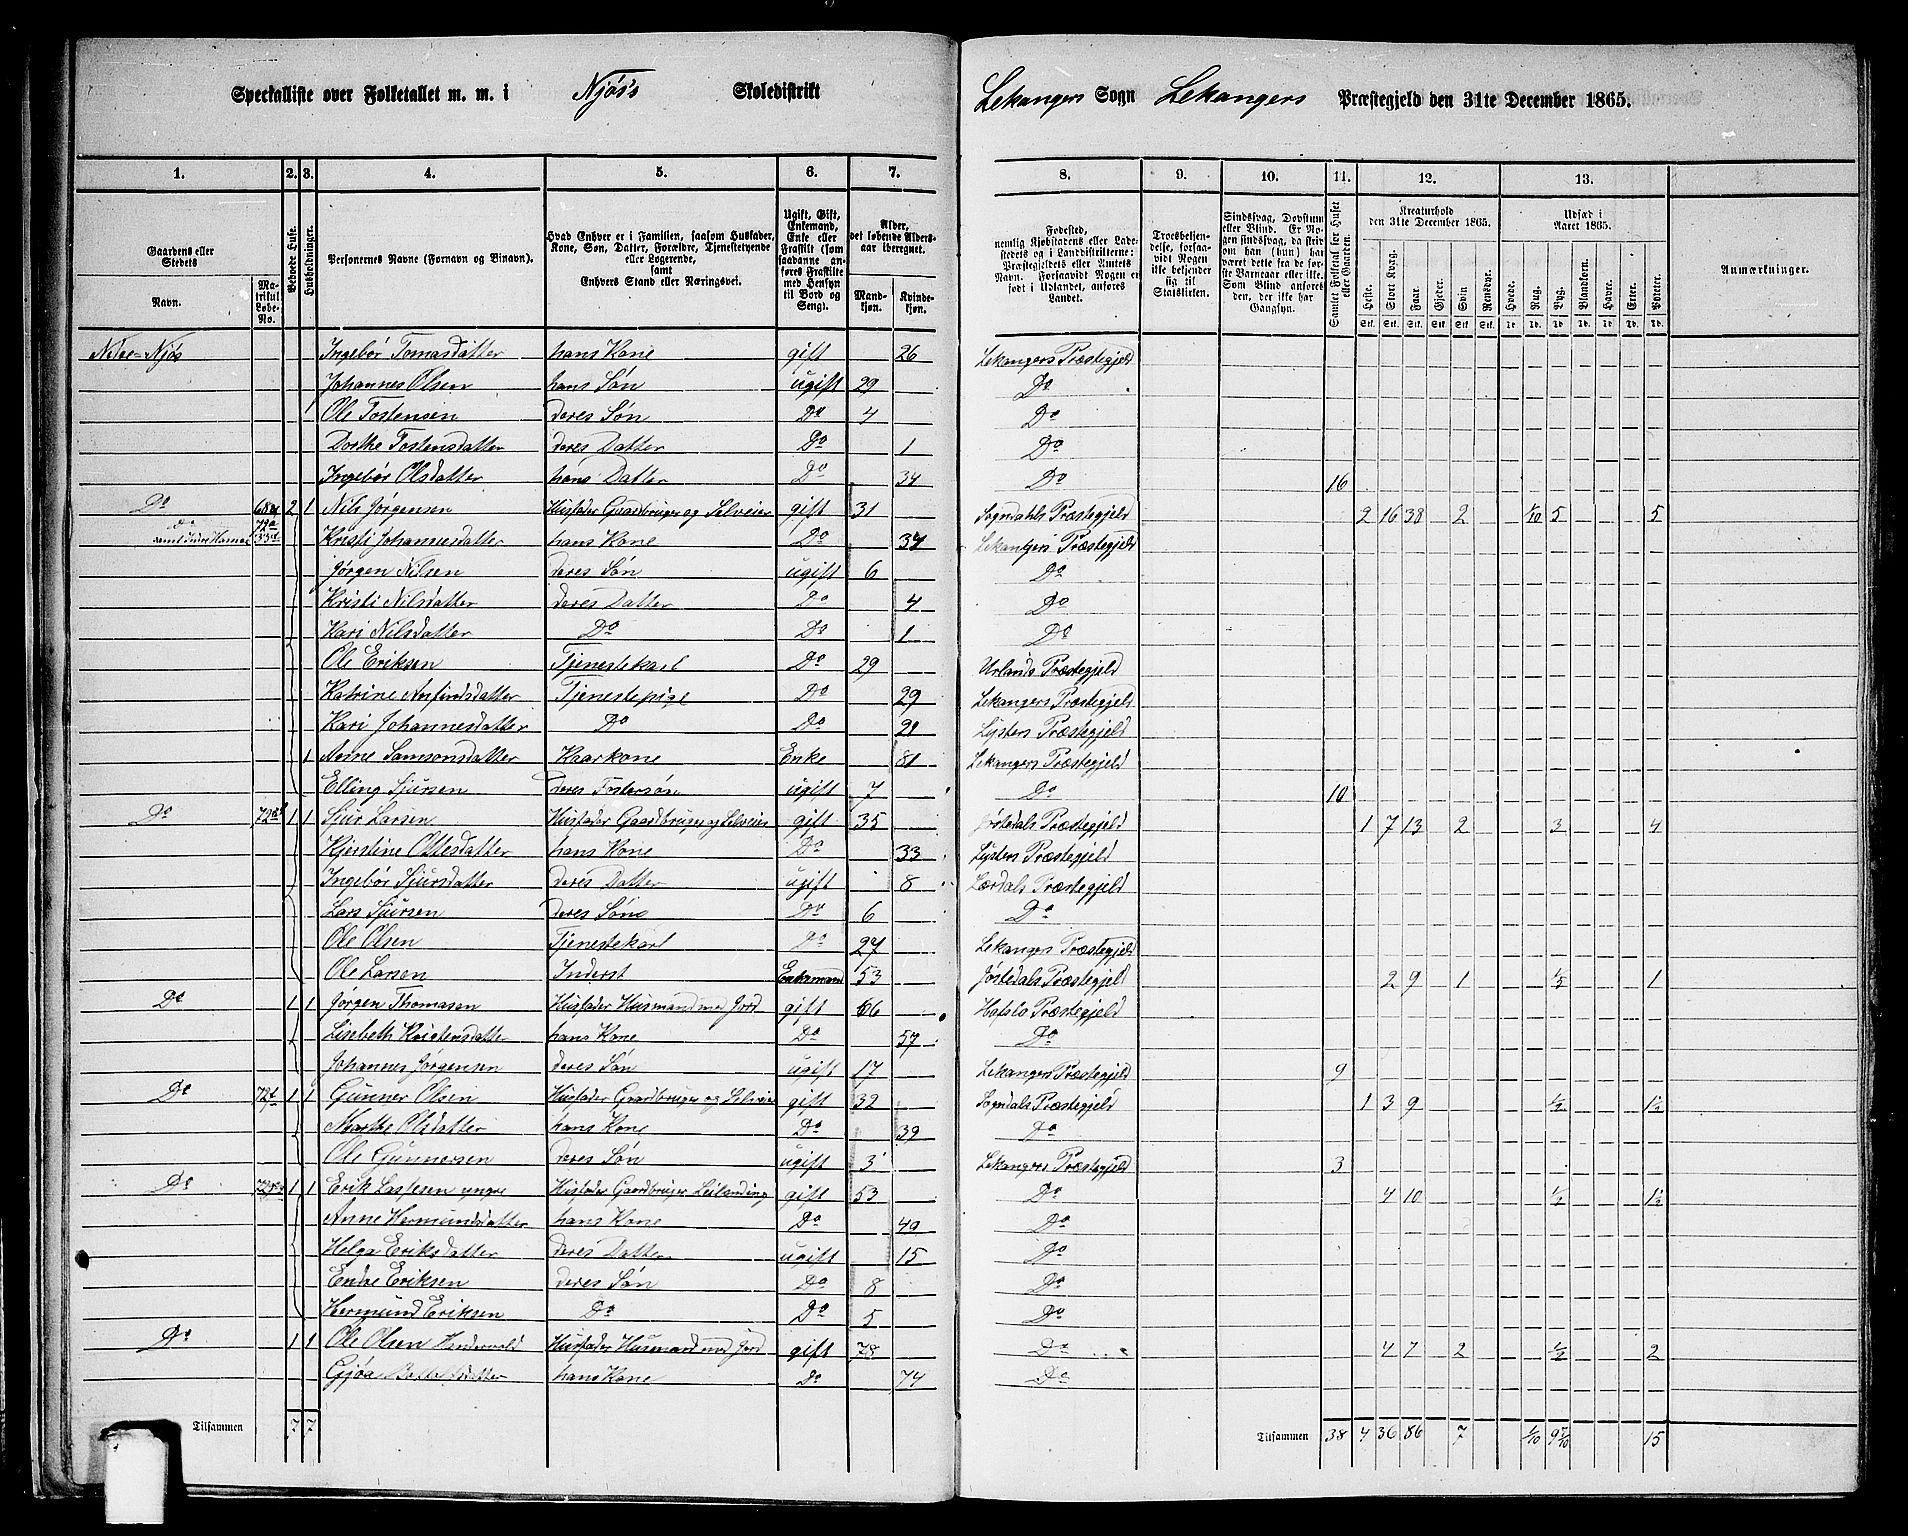 Specialliste over Folketallet m. m. i Njøs's Skoledistrikt Lekangers Sogn Lekangers Præstegjeld den 31te December 1865.
1. 2. 3. 4. 5. 6. 7. 8. 9. 10. 11. 12. 13.
Gaardens eller Stedets
Navn.
Matrikul Løbe-No.
Beboede Huse.
Huusholdninger.
Personernes Navne (Fornavn og Binavn).
Hvad Enhver er i Familien, saasom Husfader, Kone, Søn, Datter, Forældre, Tjenestetyende eller Logerende, samt Enhvers Stand eller Næringsvei.
Ugift, Gift, Enkemand, Enke eller Fraskilt (som saadanne anføres Fraskilte med Hensyn til Bord og Seng).
Alder, det løbende Aldersaar iberegnet.
Mandkjøn. Kvindekjøn.
Fødested, nemlig Kjøbstadens eller Ladestedets og i Landdistrikterne: Præstegjeldets eller Amtets Navn. Forsaavidt Nogen er født i Udlandet, anføres Landet.
Troesbekjendelse, forsaavidt Nogen ikke bekjender sig til Statskirken.
Sindssvag, Døvstum eller Blind. Er Nogen sindssvag, da skrives om han (hun) har været dette fra de første Barneaar eller ei. Som Blind anføres den, der ikke har Gangsyn.
Samlet Folketal for Huset eller Gaarden.
Kreaturhold den 31te December 1865.
Heste. Stort Kvæg. Faar. Gjeder. Svin. Rensdyr.
Udsæd i Aaret 1865.
Hvede. Rug. Byg. Blandkorn. Havre. Erter. Poteter.
Anmærkninger.
Nedre-Njøs Ingebør Tomasdatter hans Kone gift 26 Lekangers Præstegjeld
Johannes Olsen hans Søn ugift 29 Do
Ole Tostensen deres Søn Do 4 Do
Dorthe Tostensdatter deres Datter Do 1 Do
Ingebør Olsdatter hans Datter Do 34 Do 16
Do 68a 2 1 Nils Jørgensen Husfader Gaardbruger og Selveier gift 31 Sogndals Præstegjeld 2 16 38 2 1/10 5 5
Do 72a
Kristi Johannesdatter hans Kone Do 37 Lekangers Præstegjeld
Jørgen Nilsen deres Søn ugift 6 Do
Kristi Nilsdatter deres Datter Do 4 Do
Kari Nilsdatter Do Do 1 Do
Ole Eriksen Tjenestekarl Do 29 Urlands Præstegjeld
Katrine Anfindsdatter Tjenestepige Do 29 Lekangers Præstegjeld
Kari Johannesdatter Do Do 21 Lysters Præstegjeld
1 Anne Samsonsdatter Kaarkone Enke 81 Lekangers Præstegjeld
Elling Sjursen deres Fostersøn ugift 7 Do 10
Do 1 1 Sjur Larsen Husfader Gaardbruger og Selveier gift 35 Jostedals Præstegjeld 1 7 13 2 3 4
Kjerstine Ottesdatter hans Kone Do 33 Lysters Præstegjeld
Ingebør Sjursdatter deres Datter ugift 8 Lærdals Præstegjeld
Lars Sjursen deres Søn Do 6 Do
Ole Olsen Tjenestekarl Do 27 Lekangers Præstegjeld
Ole Larsen Inderst Enkemand 53 Jostedals Præstegjeld 2 9 1 1/5 1
Do 1 1 Jørgen Thomasen Husfader Husmand med Jord gift 66 Hafslo Præstegjeld
Lisebeth Kristensdatter hans Kone Do 57 Do
Johannes Jørgensen deres Søn ugift 17 Lekangers Præstegjeld 9
Do 1 1 Gunner Olsen Husfader Gaardbruger og Selveier gift 32 Sogndals Præstegjeld 1 3 9 1/2 1 1/2
Marthe Olsdatter hans Kone Do 39 Do
Ole Gunnersen deres Søn ugift 3 Lekangers Præstegjeld 3
Do 1 1 Erik Lassesen yngre Husfader Gaardbruger Leilænding gift 53 Do 4 10 1/2 1 1/2
Anne Hermundsdatter hans Kone Do 40 Do
Helga Eriksdatter deres Datter ugift 15 Do
Endre Eriksen deres Søn Do 8 Do
Hermund Eriksen Do Do 5 Do
Do 1 1 Ole Olsen Husfader Husmand med Jord gift 78 Do 4 7 2 1/2 2
Gjøa hans Kone Do 74 Do
Tilsammen 7 7 Tilsammen 38 4 36 86 7 1/10 9 7/10 15